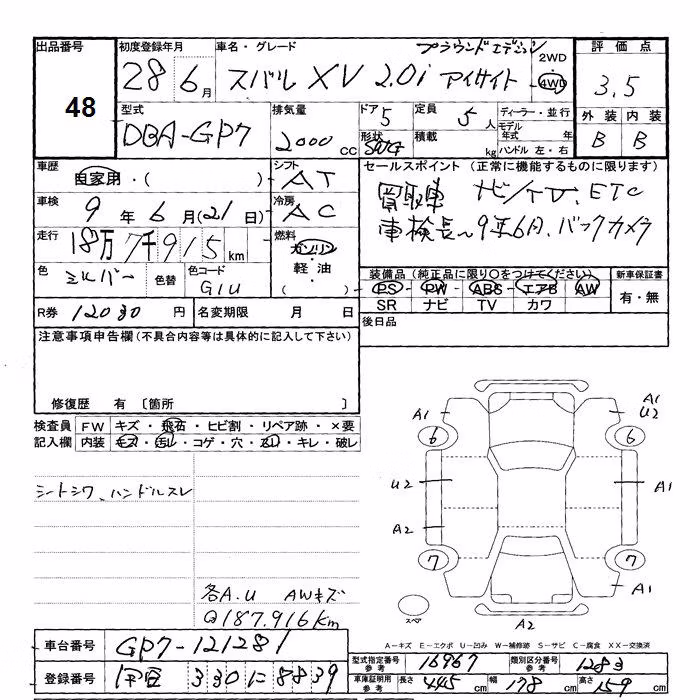 出品番号 48
初度登録年月 28年 6月
車名・グレード プラウンドエディション
スバル XV 2.0i アイサイト
2WD
4WD
評価点 3.5
外装 B 内装 B
型式 DBA-GP7
排気量 2000 CC
ドア 5
形状
定員 5人
積載 kg
ディーラー・並行
モデル年式 年
ハンドル 左・右
車歴 自家用・( )
シフト AT
車検 9年 6月(21日)
冷房 AC
走行 18万7千915km
燃料 ガソリン・軽油・( )
色 シルバー 色替 色コード G1U
R券 12030円 名変期限 月 日
セールスポイント (正常に機能するものに限ります)
買取車 ナビ/TV、ETC
車検長〜9年6月、バックカメラ
装備品 (純正品に限り○をつけてください) 新車保証書
PS - PW - ABS - エアB - AW 有・無
SR ナビ TV カワ
後日品
注意事項申告欄 (不具合内容等は具体的に記入して下さい)
修復歴 有 〔箇所 〕
検査員記入欄
FW キズ・飛石・ヒビ割・リペア跡・×要
内装 キズ・汚レ・コゲ・穴・スレ・キレ・破レ
シートシワ、ハンドルスレ
各A.U AWキズ
Q187,916Km
A1
A1
U2
6
6
U2
A1
A2
7
7
A1
スペア
A2
A-キズ E-エクボ U-凹み W-補修跡 S-サビ C-腐食 XX-交換済
車台番号 GP7-121281
登録番号 330 に 8839
型式指定番号 参考 16967 類別区分番号 参考 1283
車庫証明用 参考 長さ 445cm 幅 178cm 高さ 159cm